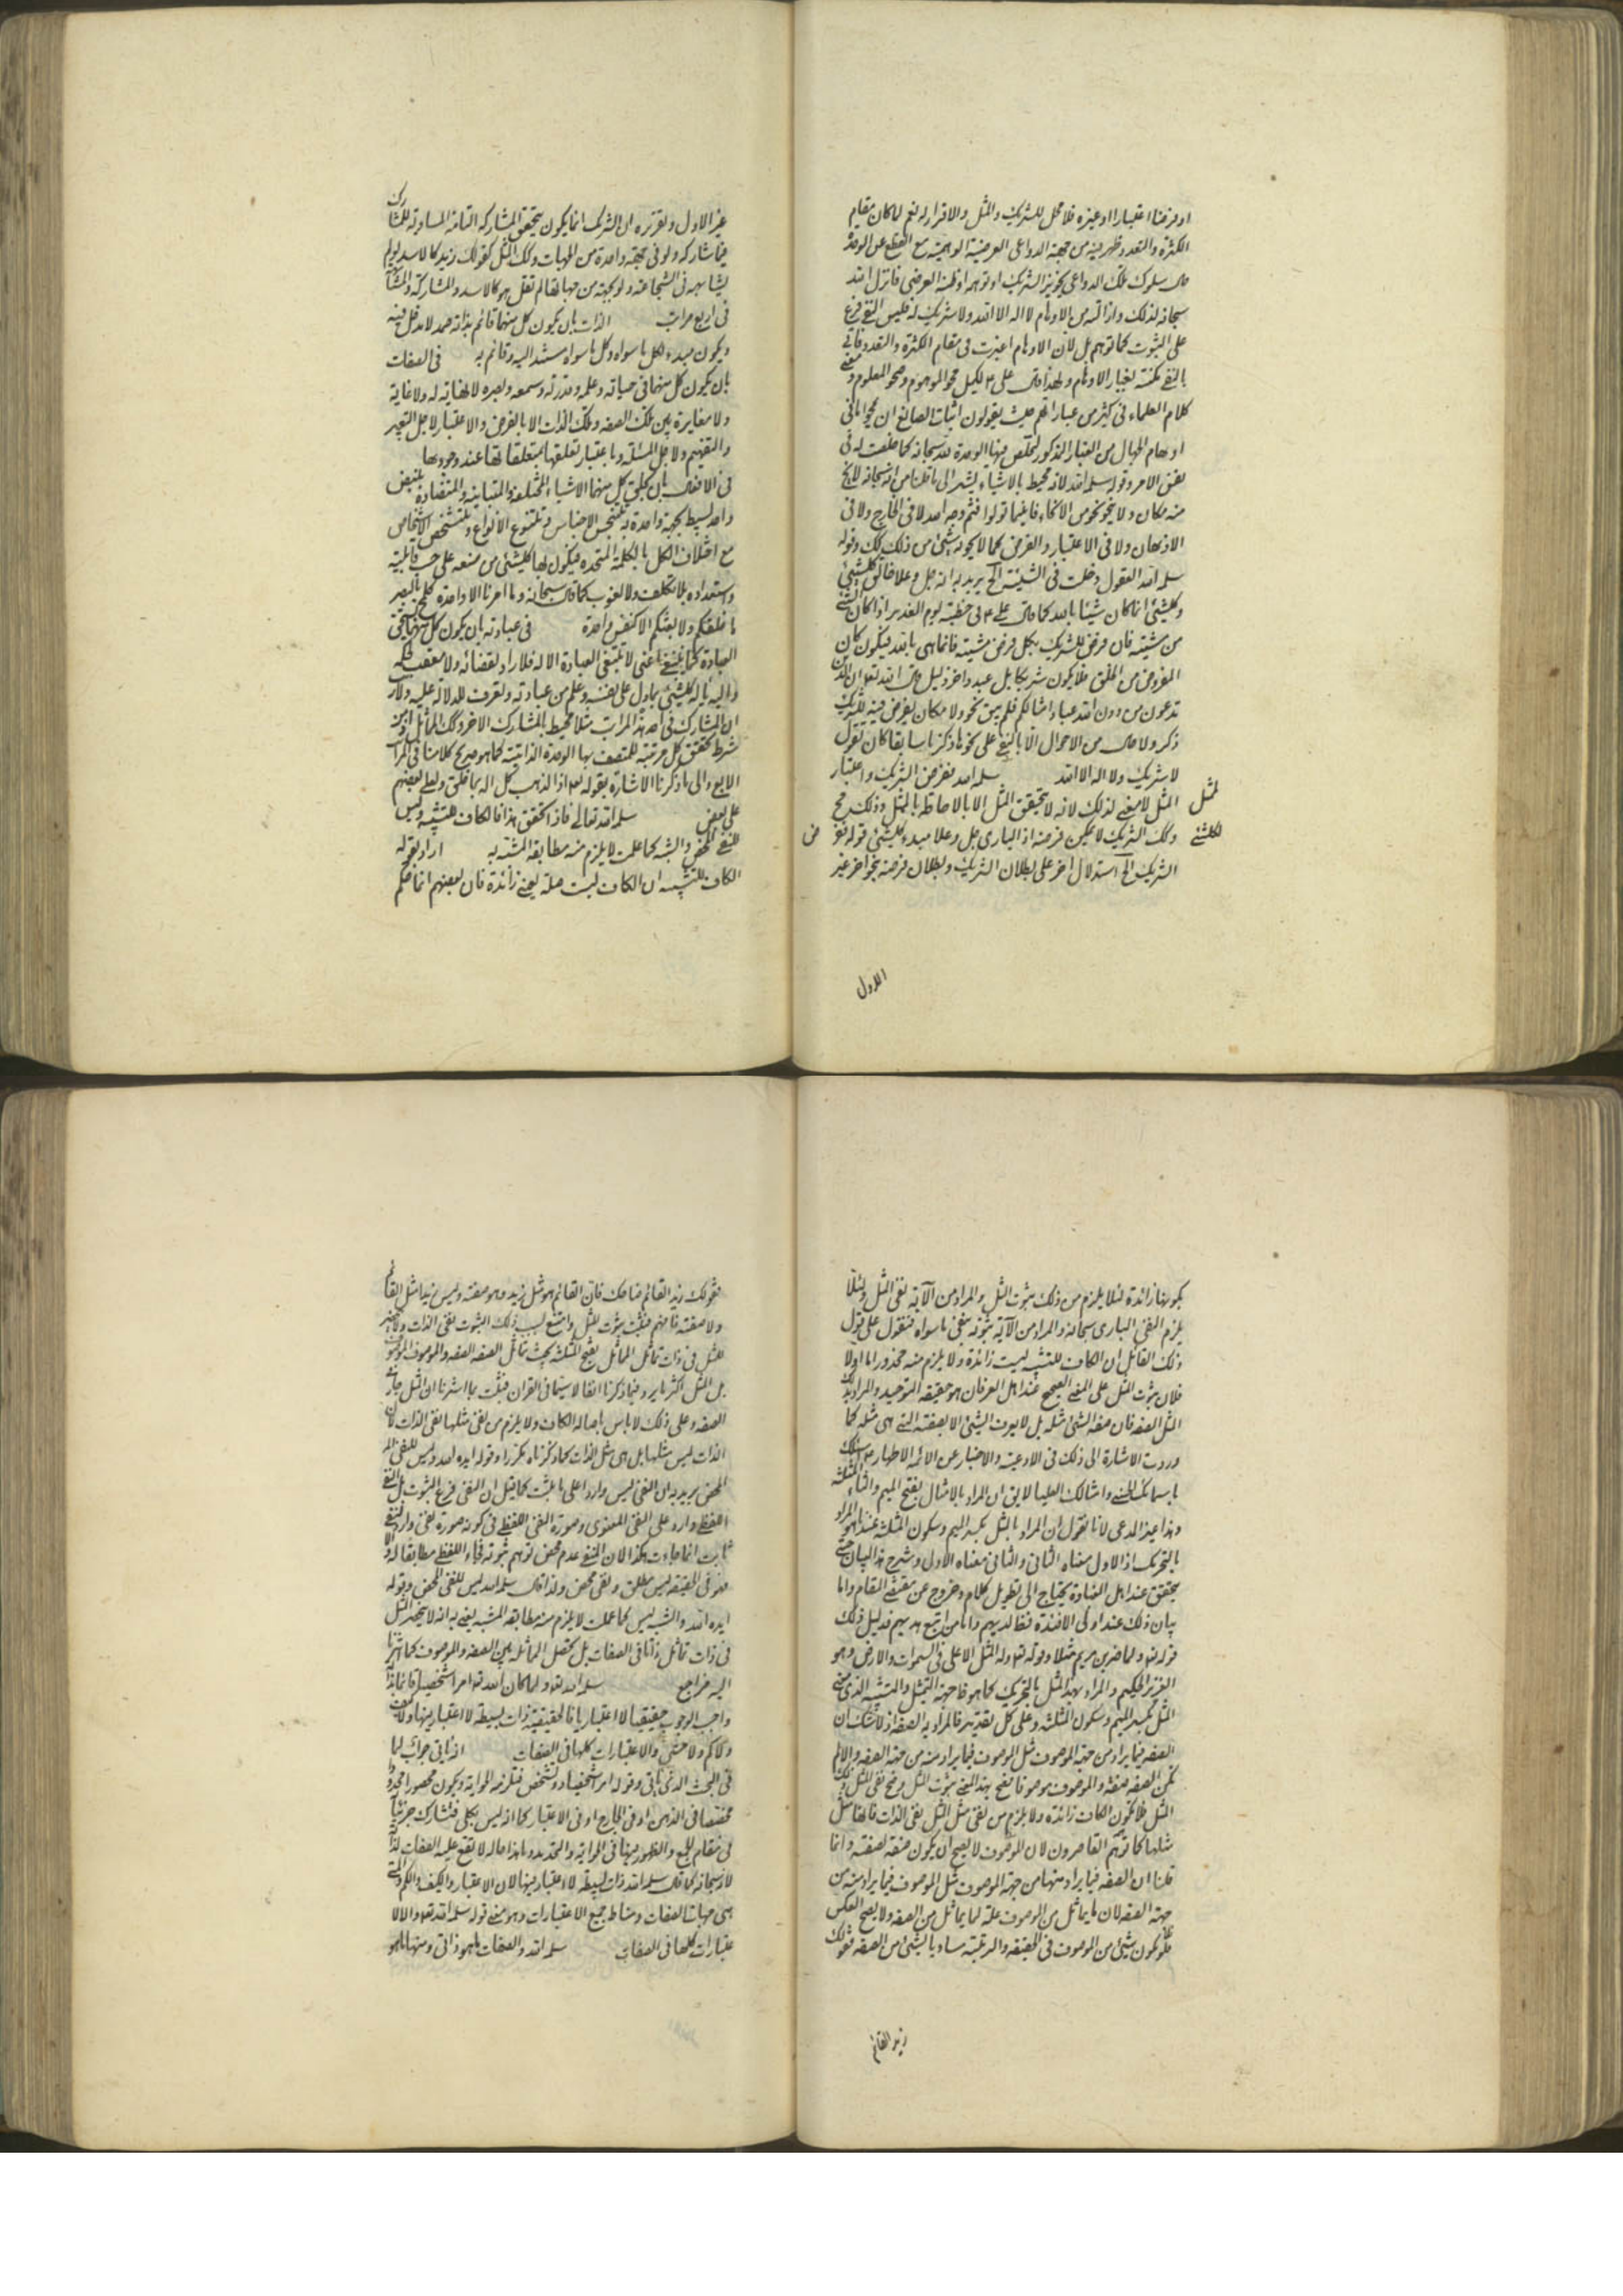 او فرضنا اعتبارا او غيره فلا محل للشريك والمثل والاقرار له نعم لما كان مقام
الكثرة والتعدد من جهة الدواعى العرضية الوهمية مع القطع عن الوحدة
سلوك تلك الدواعى تجويز الشريك او توهمه او ظنه العرضى فانزل الله
سبحانه لذلك وازالته من الاوهام لا اله الا الله ولا شريك له فليس النفى فرع
على الثبوت كما توهم بل لان الاوهام اعتبرت فى مقام الكثرة والتعدد فاتى
بالنفى لغبار الاوهام ولهذا قال على ع لكميل محو الموهوم وصحو المعلوم وفى
كلام العلماء فى كثير من عباراتهم حيث يقولون اثبات الصانع ان محو ما فى
اوهام الجهال من الغبار المذكور لتخلص منها الوحدة لله سبحانه كما خلصت له فى
نفس الامر وقوله سلمه الله لانه محيط بالاشياء يشير الى ما قلنا من انه سبحانه لا يخ
منه مكان ولا نحو من الانحاء فاينما تولوا فثم وجه الله لا فى الخارج ولا فى
الاذهان ولا فى الاعتبار والفرض كما لا يحويه شئ من ذلك كك وقوله
سلمه الله العقول دخلت فى الشيئية الخ يريد به انه جل وعلا خالق كلشئ
وكلشئ انما كان شيئا بالله كما قال على ع فى خطبته يوم الغدير اذ كان الشئ
من مشيته فان فرض للشريك بكل فرض مشيته فانما هى بالله فيكون كان
المفروض من الخلق فلا يكون شريكا بل عبد داخر ذليل قال الله تعا ان الذين
تدعون من دون الله عباد امثالكم فلم يبق نحو ولا مكان يفرض فيه للشريك
ذكر ولا حال من الاحوال الا بالنفى على نحو ما ذكرنا سابقا كان تقول
لا شريك ولا اله الا الله سلمه الله فنفرض الشريك واعتبار
المثل لا معنى لذلك لانه لا يتحقق المثل الا بالاحاطة بالمثل وذلك مح
وكك الشريك لا يمكن فرضه اذ البارى جل وعلا مبدء كلشئ قوله نعم
الشريك الخ استدلال اخر على بطلان الشريك وبطلان فرضه بنحو اخر غير
لمثل
لكلشئ
الاول
غير الاول وتقريره ان الشريك انما يكون بتحقق المشاركة التامة المساوية للمشارك
فيما شاركه ولو فى جهة واحدة من الجهات وكك المثل كقولك زيد كالاسد لو لم
يشابهه فى الشجاعة ولو بجهة من جهاتها لم تقل هو كالاسد والمشاركة
فى اربع مراتب الذات بان يكون كل منهما قائم بذاته صمد لا مدخل فيه
ويكون مبدء لكل ما سواه وكل ما سواه مستند اليه وقائم به فى الصفات
بان يكون كل منهما فى حياته وعلمه وقدرته وسمعه وبصره لا نهاية له ولا غاية
ولا مغايرة بين تلك الصفة وتلك الذات الا بالفرض والاعتبار لاجل التعبير
والتفهيم ولاجل المسئلة وباعتبار تعلقها بمتعلقاتها عند وجودها
فى الافعال بان يخلق كل منهما الاشياء المختلفة والمتباينة والمتضادة بفيض
واحد بسيط بجهة واحدة به تتجنس الاجناس وتتنوع الانواع وتتشخص الاشخاص
مع اختلاف الكل بالكلمة المتحدة فيكون بها كلشئ من صنعه على حسب قابليته
واستعداده بلا تكلف ولا لغوب كما قال سبحانه وما امرنا الا واحدة كلمح بالبصر
ما خلقكم ولا بعثكم الا كنفس واحدة فى عبادته بان يكون كل منهما يستحق
العبادة كما ينبغى اعنى لا تبتغى العبادة الا له فلا راد لقضائه ولا معقب لحكمه
واليه كلشئ بما دل على نفسه وعلم من عبادته وتعرف لله لا له عليه
ان المشارك فى احد هذه المراتب مثلا محيط بالمشارك الاخر وكك المماثل
شرط تحقق كل مرتبة للمتصف بها الوحدة الذاتية كما هو صريح كلامنا فى المراتب
الاربع والى ما ذكرنا الاشارة بقوله تعا اذا لذهب كل اله بما خلق ولعلى بعضهم
على بعض سلمه الله تعالى فاذا تحقق هذا فالكاف للتشبيه وليس
للنفى المحض والشبه كما علمت لا يلزم منه مطابقة المشتبه به اراد بقوله
الكاف للتشبيه ان الكاف ليست صلة يعنى زائدة فان بعضهم انما حكم
بكونها زائدة لئلا يلزم من ذلك ثبوت المثل والمراد من الآية نفى المثل ولئلا
يلزم النفى البارى سبحانه والمراد من الآية ثبوته بنفى ما سواه فنقول على قول
ذلك القائل ان الكاف للتشبيه ليست زائدة ولا يلزم منه محذور اما اولا
فلان ثبوت المثل على المعنى الصحيح عند اهل العرفان هو حقيقة التوحيد والمراد بذلك
المثل الصفة فان صفة الشئ مثله بل لا يعرف الشئ الا بصفته التى هى مثله كما
وردت الاشارة الى ذلك فى الادعية والاخبار عن الائمة الاطهار ع اسئلك
باسمائك الحسنى وامثالك العليا لا يق ان المراد بالامثال بفتح الميم والثاء المثلثة
وهذا غير المدعى لانا نقول ان المراد بالمثل بكسر الميم وسكون المثلثة عندنا هو المراد
بالتحريك اذ الاول معناه الثانى والثانى معناه الاول وشرح هذا البيان حتى
يتحقق عند اهل العناد يحتاج الى تطويل كلام وخروج عن مقتضى المقام واما
بيان ذلك عند اولى الافئدة فظاهر لديهم واما من اتبع هديهم فدليل ذلك
قوله تعا ولما ضرب ابن مريم مثلا وقوله تعا وله المثل الاعلى فى السموات والارض وهو
العزيز الحكيم والمراد بهذا المثل بالتحريك كما هو فى جهة التمثيل والتشبيه الذى معنى
المثل بكسر الميم وسكون المثلثة وعلى كل تقدير فالمراد به الصفة اذ لا شك ان
الصفة فيما يراد من جهة الموصوف مثل الموصوف فيما يراد منه من جهة الصفة والا لم
تكن الصفة صفة والموصوف موصوفا فصح بهذا المعنى ثبوت المثل وصح نفى المثل
المثل فلا تكون الكاف زائدة ولا يلزم من نفى مثل المثل نفى الذات فانها مثل
مثلها كما توهمه القاصرون لان الموصوف لا يصح ان يكون صفة لصفته وانما
قلنا ان الصفة فيما يراد منها من جهة الموصوف مثل الموصوف فيما يراد منه من
جهة الصفة لان ما يماثل من الموصوف علة لما يماثل من الصفة ولا يصح العكس
فلو يكون شئ من الموصوف فى الحقيقة والرتبة مساويا لشئ من الصفة تقولك
زيد القائم
تقولك زيد القائم ضاحك فان القائم هو مثل زيد وهو صفته وليس زيد مثل القائم
ولا صفته فافهم فثبت ثبوت المثل وامتنع لسبب ذلك الثبوت نفى الذات
للمثل فى ذات تماثل المماثل بفتح المثلثة بحيث تماثل الصفة الصفة والموصوف الموصوف
بل المثل اكثر ما يرد فيما ذكرنا انفا لا سيما فى القران فثبت بما اشرنا ان المثل جار
الصفة وعلى ذلك لا باس باصالة الكاف ولا يلزم من نفى مثلها نفى الذات لان
الذات ليس مثلها بل هى مثل الذات كما ذكرناه مكررا وقوله ايده الله وليس للنفى
المحض يريد به ان النفى ليس واردا على ما يثبت كما قيل ان النفى فرع الثبوت بل النفى
اللفظى وارد على النفى المعنوى وصورة النفى اللفظى فى كونه صورة نفى وارد لنفى
ثابت انما جاءت هكذا لان النفى عدم محض توهم ثبوته فجاء اللفظ مطابقا له
فهو فى الحقيقة ليس مطلق ونفى محض ولذا قال سلمه الله ليس للنفى المحض وقوله
ايده الله والشبه ليس كما علمت لا يلزم منه مطابقة المشبه يعنى به انه لا ينحصر المثل
فى ذات تماثل ذاتا فى الصفات بل تحصل المماثلة بين الصفة والموصوف كما اشرنا
اليه فراجع سلمه الله تعا ولما كان الله تعا امرا شخصيا قائما بذاته
واجب الوجود حقيقيا لا اعتباريا فالحقيقة ذات بسيطة لا اعتبار فيها ولا كيف
ولا كم ولا حتى والاعتبارات كلها فى الصفات اذ ياتى جوابه لما
فى البحث الذى ياتى وقوله امرا شخصيا
مختصا فى الذهن او فى الخارج او فى الاعتبار كما انه ليس بكلى فتشاركه جزئياته
فى مقام الجمع والظهور فيها فى المواية والتحديد وما هذا حاله لا تقع عليه الصفات لذاته
لانه سبحانه كما قال سلمه الله ذات بسيطة لا اعتبار فيها لان الاعتبار والكيف والكم والمتى
هى جهات الصفات ومناط جميع الاعتبارات وهو معنى قوله سلمه الله تعا والا
عتبارات كلها فى الصفات سلمه الله والصفات ما هو ذاتى ومنها ما هو